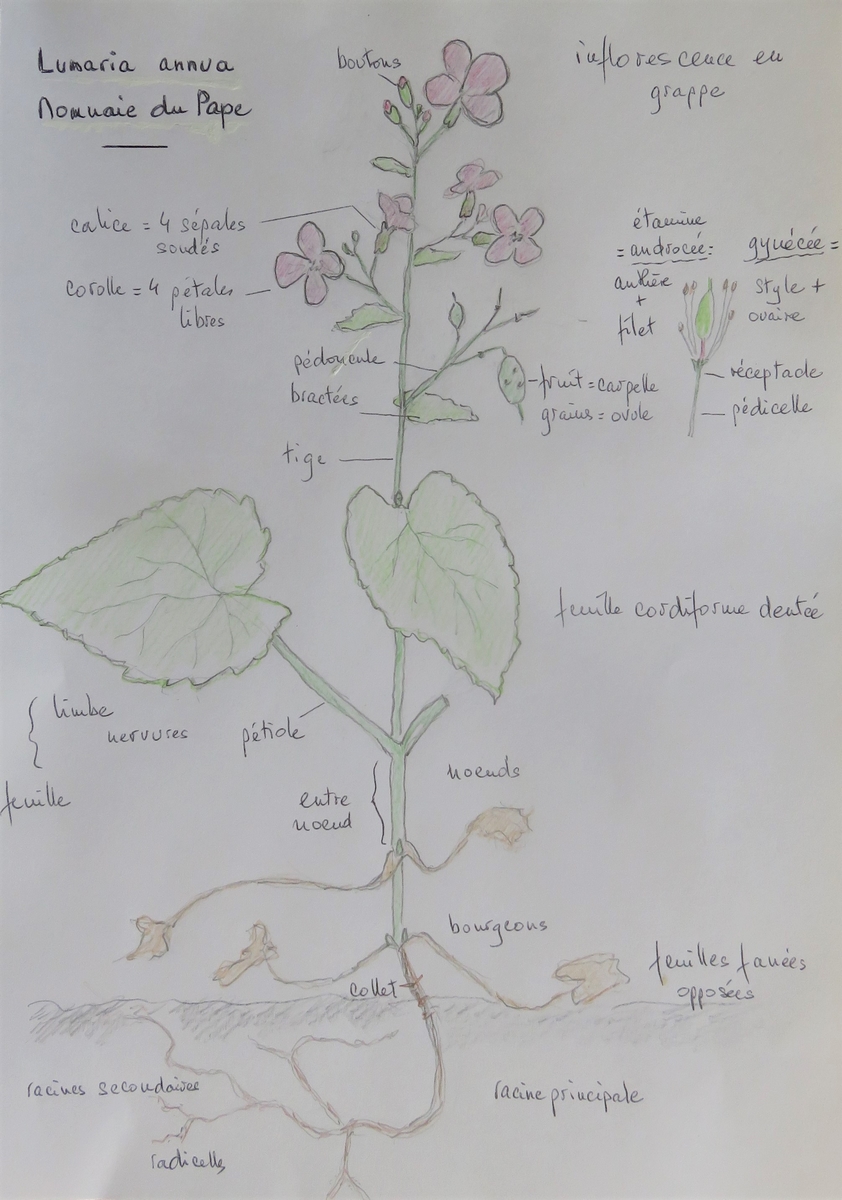 Lunaria annua
Monnaie du Pape
boutons
inflorescence en
grappe
calice = 4 sépales
soudés
corolle = 4 pétales
libres
étamine
= androcée:
anthère
+
filet
gynécée =
style +
ovaire
réceptacle
pédicelle
pédoncule
bractées
fruit = carpelle
grains = ovule
tige
feuille cordiforme dentée
limbe
nervures
feuille
pétiole
noeuds
entre
noeud
bourgeons
feuilles fanées
opposées
collet
racines secondaires
racine principale
radicelles